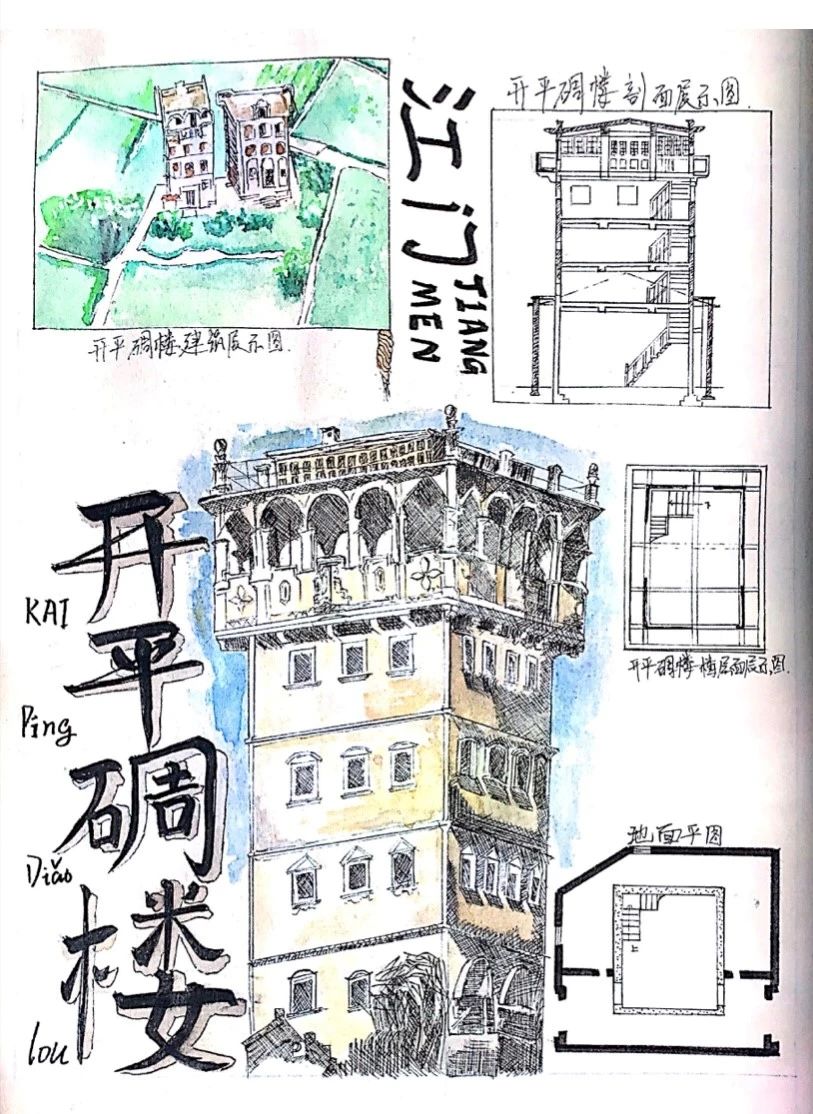 江门
JIANG
MEN
开平碉楼剖面展示图.
开平碉楼.建筑展示图.
开平碉楼
KAI
Ping
Diǎo
lou
开平碉楼.楼层面展示图.
地面平图